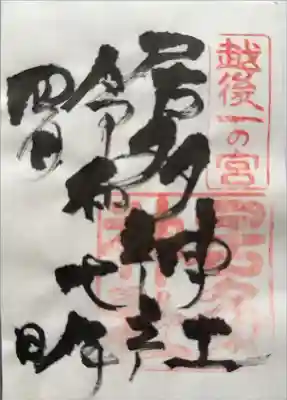 越後一の宮
居多神社
令和七年
四月 日